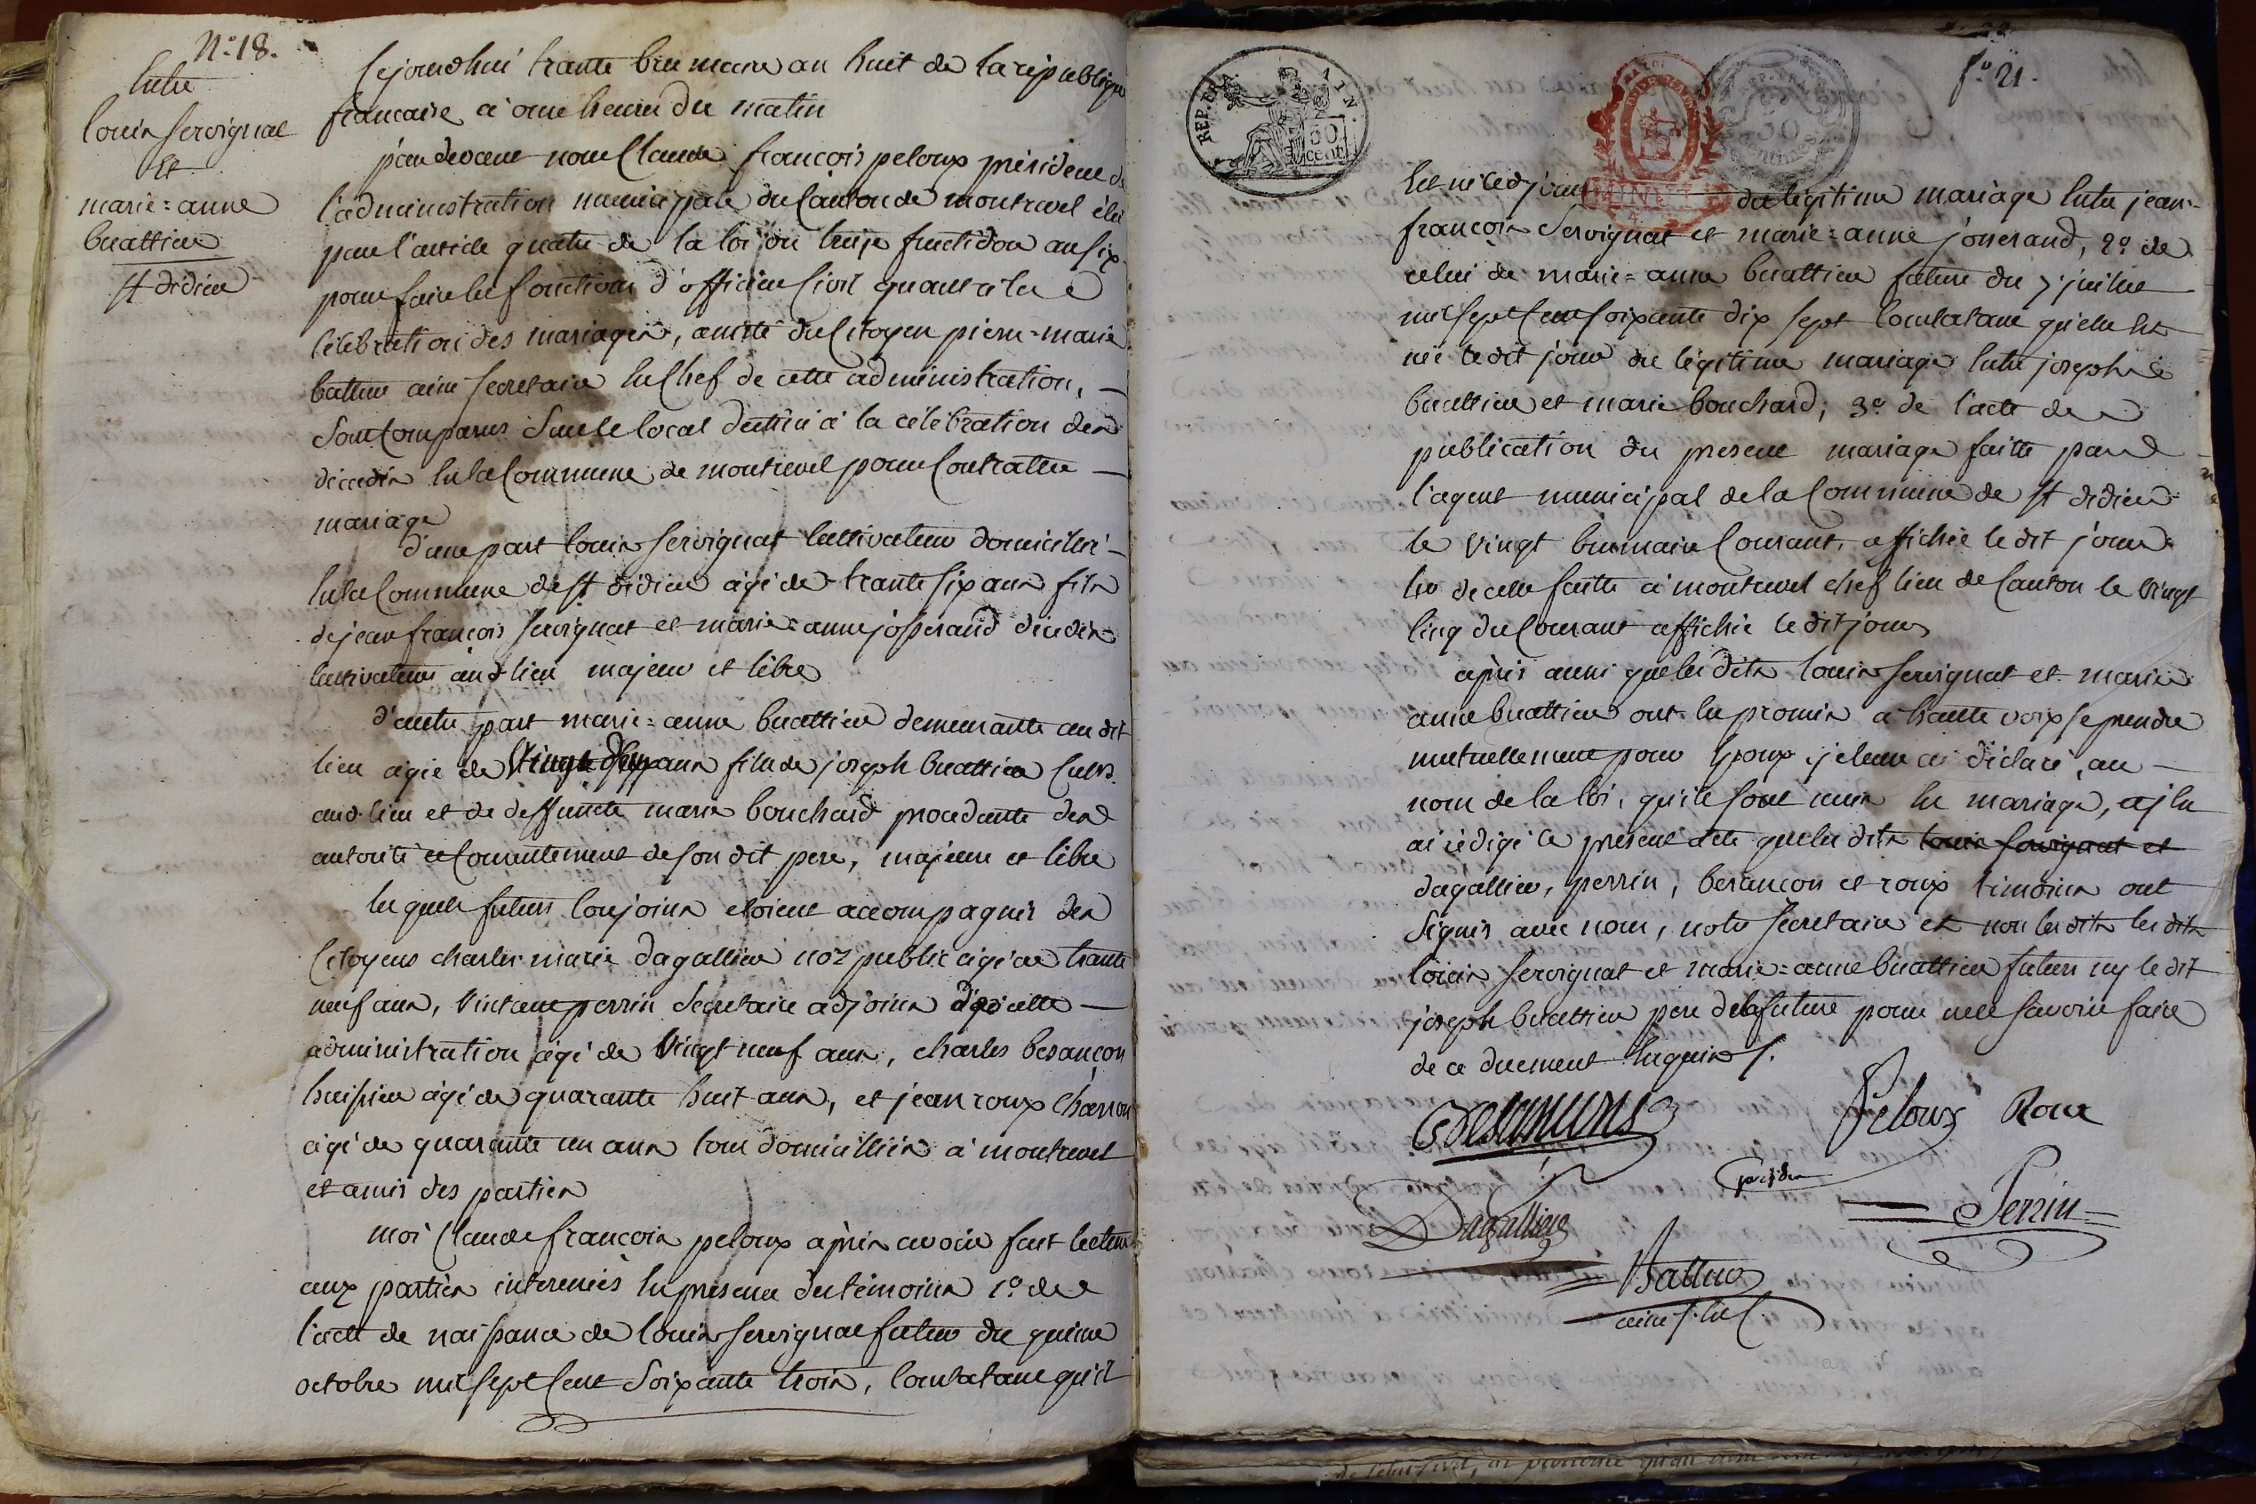 N.° 18.
Entre
louis servignat
Et
marie=anne
buattier
St didier
Cejourdhui trante brumaire an huit de la république
francaise à onze heures du matin
pardevant nous Claude françois peloux président de
l'administration municipale du Canton de montrevel élu
par l'article quatre de la loi du treize fructidor an six
pour faire les fonctions d'officier Civil quant à la
célébration des mariages, assisté du Citoyen pierre=marie
battur ainé secretaire En Chef de cette administration,
Sont Comparus Sur le local destiné à la célébration des
décadis En la Commune de montrevel pour Contracter
mariage
d'une part louis servignat Cultivateur domicilié
En la Commune de St didier agé de trante six ans fils
de jean françois servignat et marie=anne josserand décédés
Cultivateurs aud lieu majeur et libre
d'autre part marie=anne buattier demeurante au dit
lieu agée de Vingt deux ans fille de joseph buattier Cultr
aud. lieu et de deffuncte marie bouchard procedante de
autorité et Consentement de son dit pere, majeure et libre
lesquels futurs Conjoints etoient accompagnés des
Citoyens charles marie dagallier noe public agé de trante
neuf ans, Vincent perrin Secretaire adjoint d'icelle
administration agé de Vingt neuf ans, charles besançon
huissier agé de quarante huit ans, et jean roux Charron
agé de quarante un ans tous domicilliés à montrevel
et amis des parties
moi Claude françois peloux après avoir fait lecture
aux parties interessés En presence des témoins 1.° de
l'acte de naissance de louis servignat futur du quinze
octobre mil sept Cent Soixante trois, Constatant qu'il
f.° 21.
REP. FRA.
AIN
50
cent.
Est né ledjour du légitime mariage Entre jean=
françois Servignat et marie=anne josserand, 2.° de
celui de marie=anne buattier future du 7 juillet
mil sept Cent soixante dix sept Constatant qu'elle Est
née le dit jour du légitime mariage Entre joseph
buattier et marie bouchard; 3.° de l'acte de
publication du present mariage faitte par
l'agent municipal de la Commune de St didier
le Vingt brumaire Courant, affichée le dit jour
Et de celle faitte à montrevel chef lieu de Canton le Vingt
Cinq du Courant affichée le dit jour
après aussi que les dits louis servignat et marie
anne buattier ont Eu promis à haute voix se prendre
mutuellement pour Epoux, je leur ai déclaré, au
nom de la loi, qu'ils sont unis En mariage, et j'En
ai rédigé le présent acte que les dits louis servignat et
dagallier, perrin, besançon et roux témoins ont
Signés avec nous, notre secretaire et non les dits les dits
louis servignat et marie=anne buattier futurs ny le dit
joseph buattier pere de la future pour ne le savoir faire
de ce duement Enquis /.
Peloux
Roux
présidt
Dagallier
Perrin
Battur
ainé